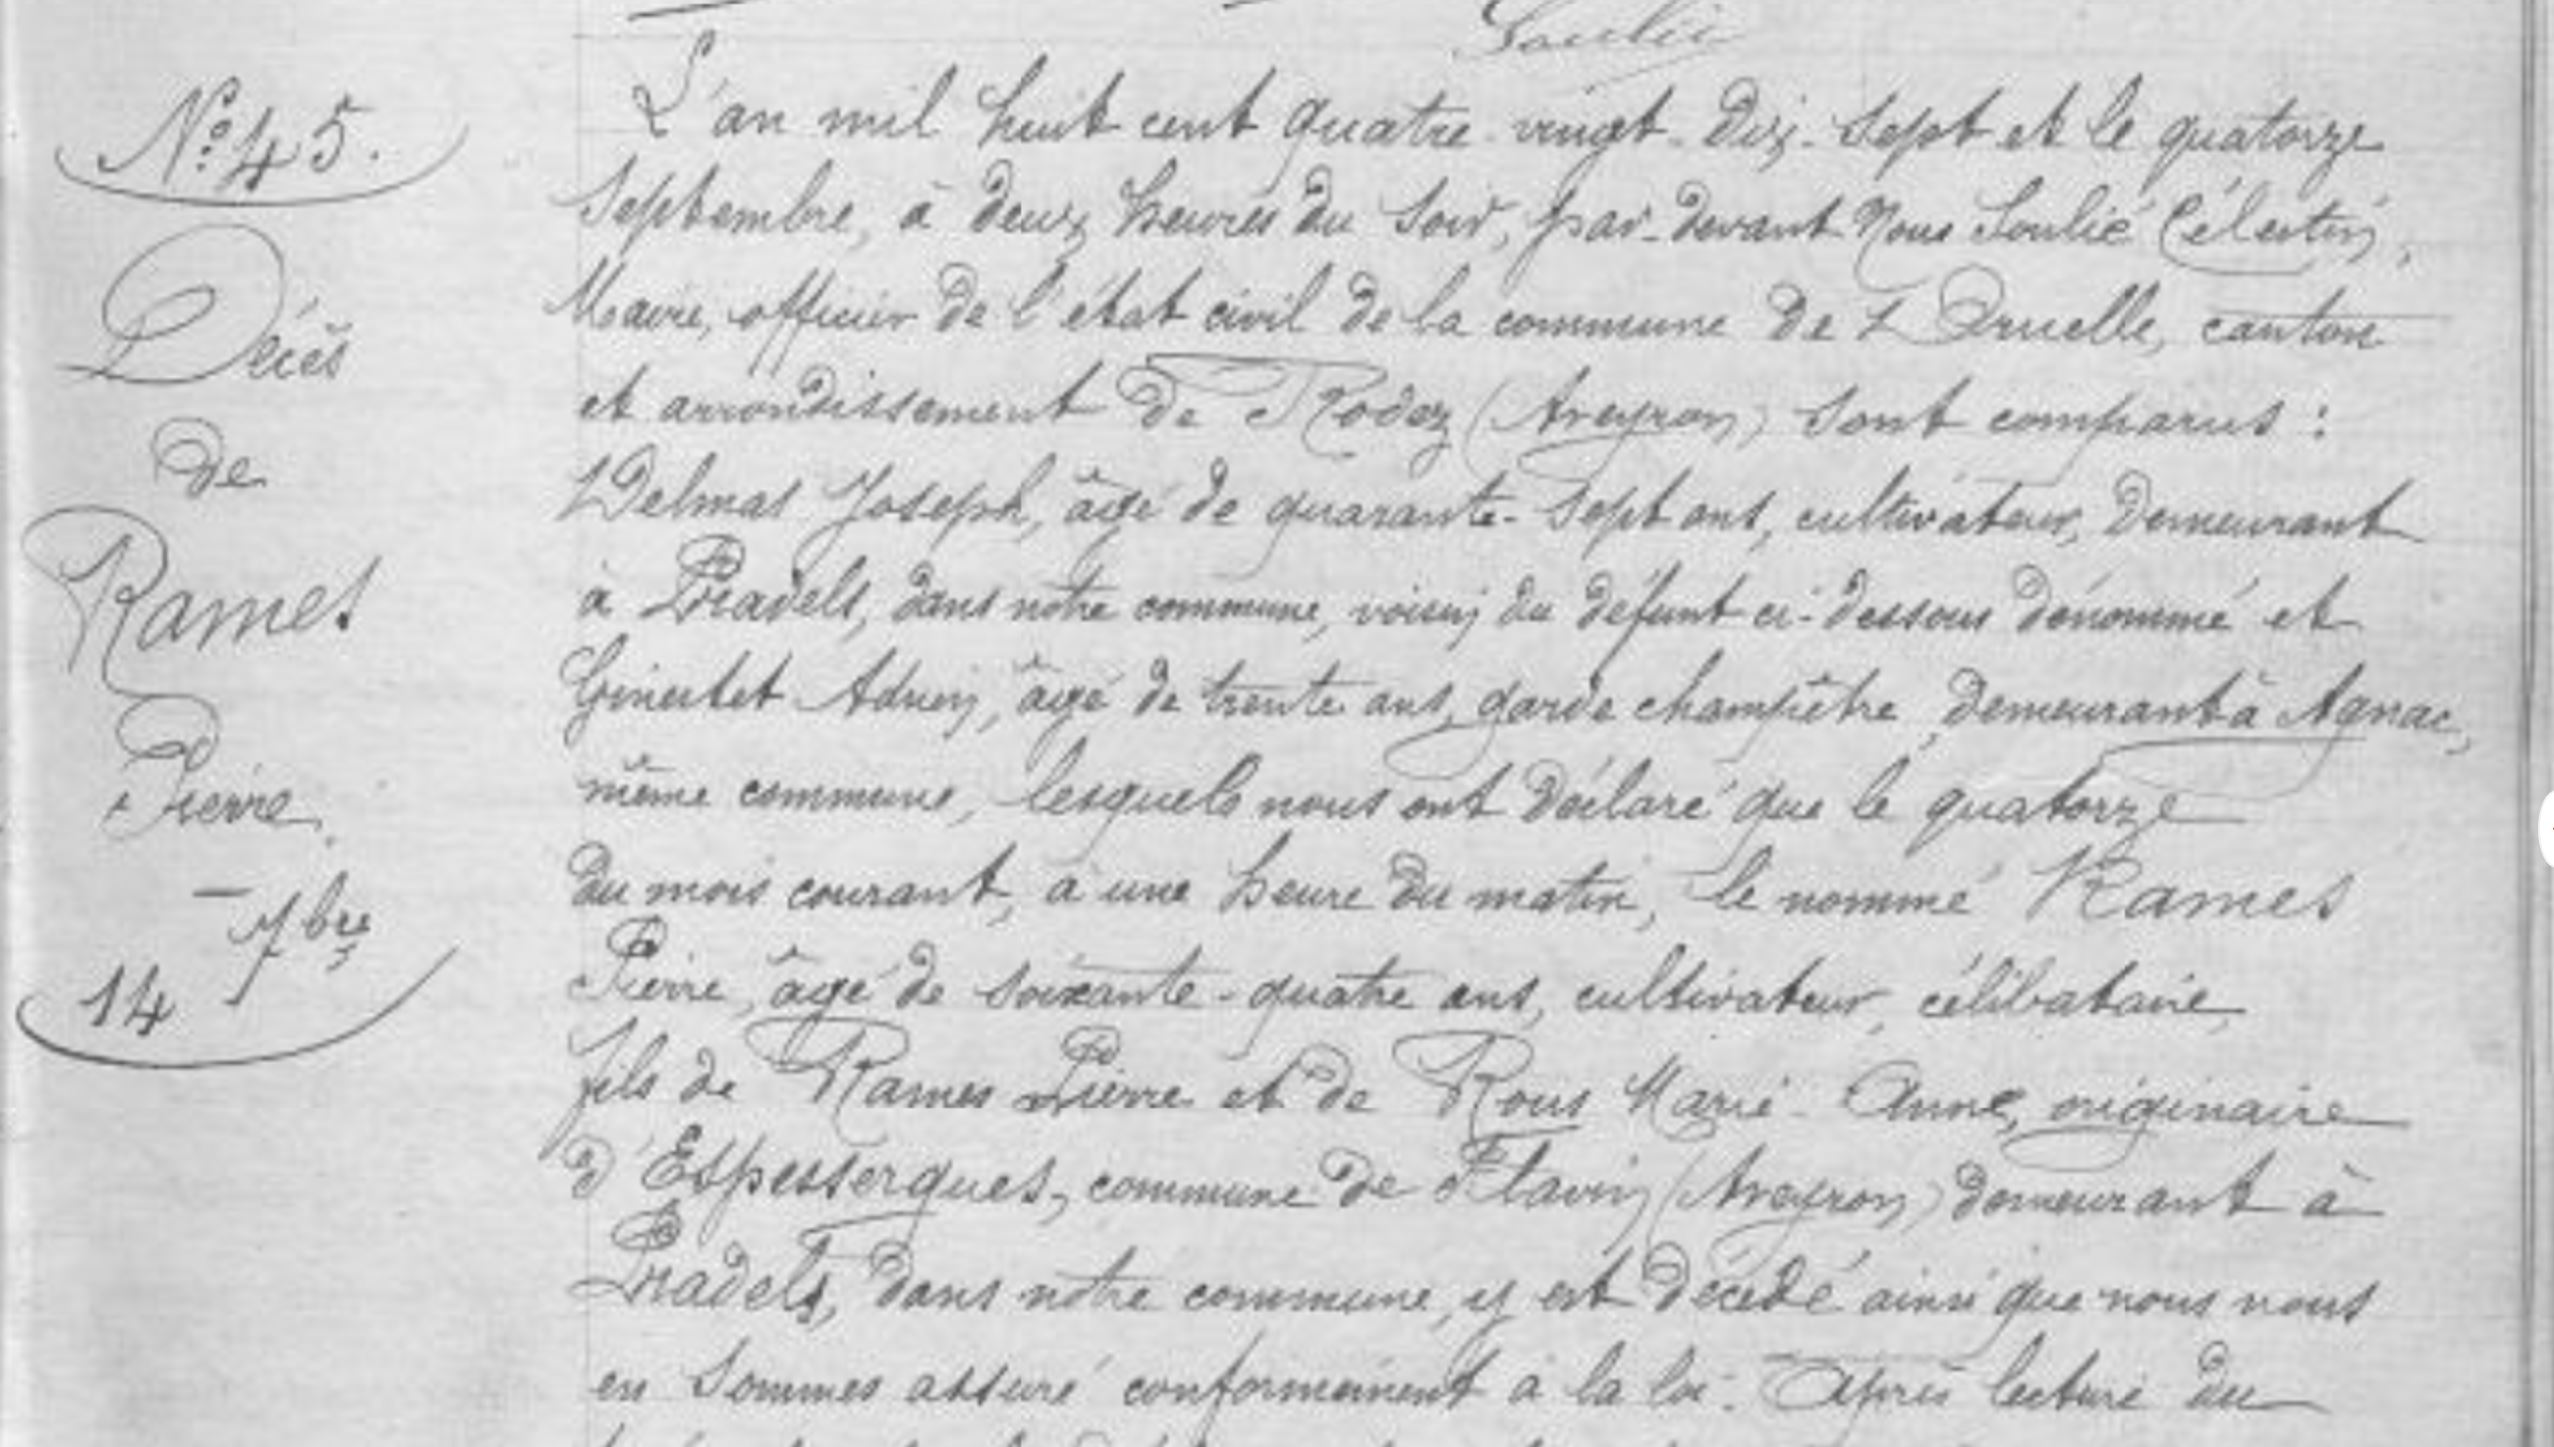 Soulié
N° 45.
Décès
de
Rames
Pierre
7bre
14
L'an mil huit cent quatre-vingt-dix-sept et le quatorze
Septembre, à deux heures du soir, par-devant Nous Soulié Célestin,
Maire, officier de l'état civil de la commune de Druelle, canton
et arrondissement de Rodez (Aveyron) sont comparus :
Delmas Joseph, âgé de quarante-sept ans, cultivateur, demeurant
à Pradels, dans notre commune, voisin du défunt ci-dessous dénommé et
Ginestet Adrien, âgé de trente ans, garde champêtre, demeurant à Agnac,
même commune, lesquels nous ont déclaré que le quatorze
du mois courant, à une heure du matin, le nommé Rames
Pierre, âgé de soixante-quatre ans, cultivateur, célibataire,
fils de Rames Pierre et de Rous Marie-Anne, originaire
d'Espessergues, commune de Flavin (Aveyron) demeurant à
Pradels, dans notre commune, y est décédé ainsi que nous nous
en sommes assuré conformément à la loi. Après lecture du